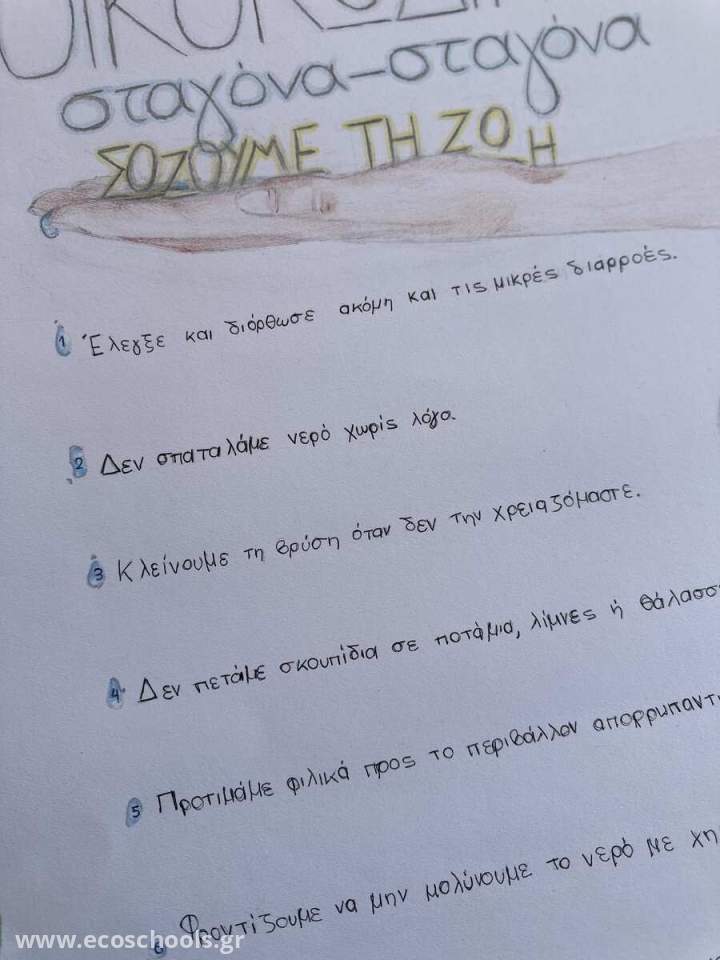 σταγόνα-σταγόνα
ΣΟΖΟΥΜΕ ΤΗ ΖΩΗ
1 Έλεγξε και διόρθωσε ακόμη και τις μικρές διαρροές.
2 Δεν σπαταλάμε νερό χωρίς λόγο.
3 Κλείνουμε τη βρύση όταν δεν την χρειαζόμαστε.
4 Δεν πετάμε σκουπίδια σε ποτάμια, λίμνες ή
5 Προτιμάμε φιλικά προς το περιβάλλον
6 Φροντίζουμε να μην μολύνουμε το νερό με
www.ecoschools.gr